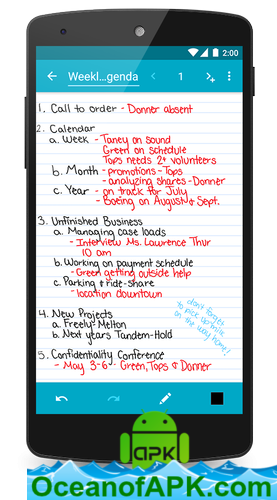 2:00
Weekl...genda
1
1. Call to order - Donner absent
2. Calendar
a. Week - Taney on sound
Green on schedule
Tops needs 2+ volunteers
b. Month - promotions - Tops
- analyzing shares - Donner
c. Year - on track for July
- Boeing on August & Sept.
3. Unfinished Business
a. Managing case loads
- Interview Ms. Lawrence Thur
10 am
b. Working on payment schedule
- Green getting outside help
c. Parking & ride-share
- location downtown
don't forget
to pick up milk
on the way home!
4. New Projects
a. Freely-Melton
b. Next years Tandem-Hold
5. Confidentiality Conference
- May 3-6 - Green, Tops & Donner
apk
OceanofAPK.com